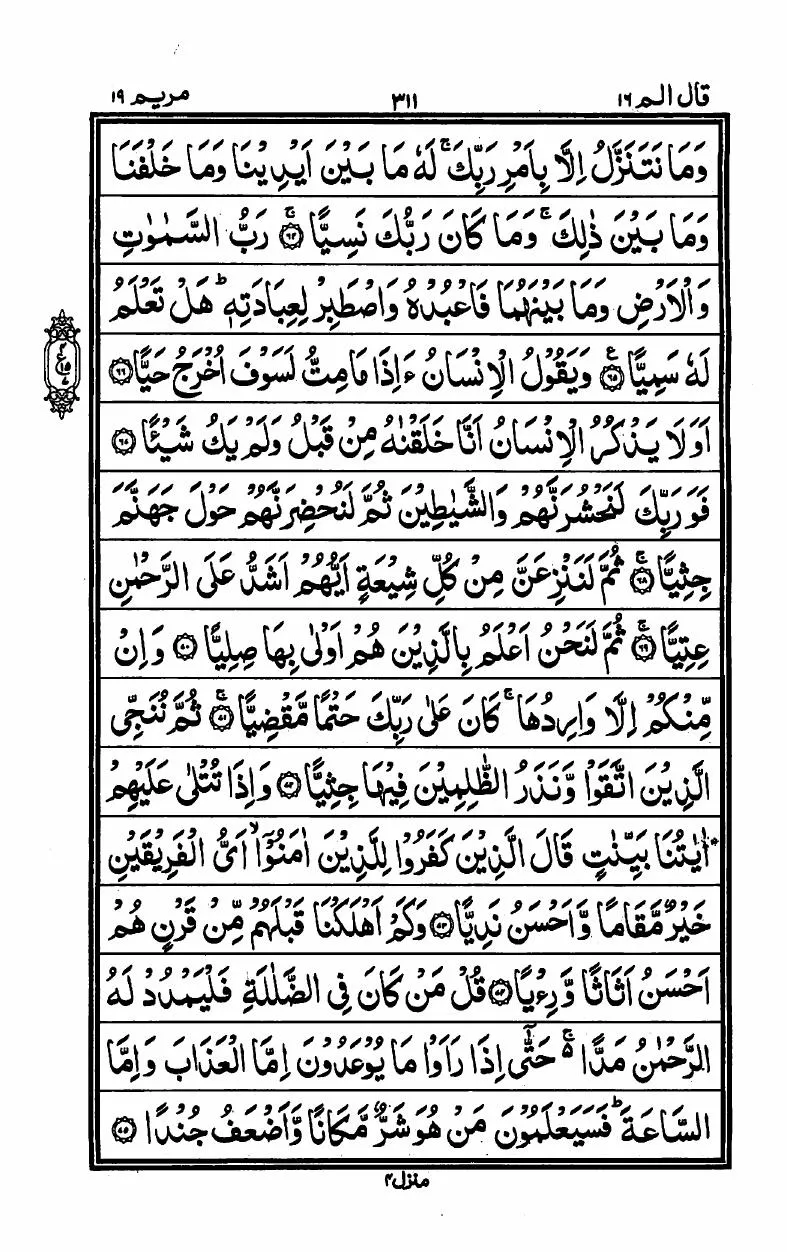 قال الم ١٦
٣١١
مريم ١٩
وَمَا نَتَنَزَّلُ اِلَّا بِاَمْرِ رَبِّكَ ۚ لَهٗ مَا بَيْنَ اَيْدِيْنَا وَمَا خَلْفَنَا
وَمَا بَيْنَ ذٰلِكَ ۚ وَمَا كَانَ رَبُّكَ نَسِيًّا ۚ﴿٦٤﴾ رَبُّ السَّمٰوٰتِ
وَالْاَرْضِ وَمَا بَيْنَهُمَا فَاعْبُدْهُ وَاصْطَبِرْ لِعِبَادَتِهٖ ؕ هَلْ تَعْلَمُ
لَهٗ سَمِيًّا ﴿٦٥﴾ع وَيَقُوْلُ الْاِنْسَانُ ءَاِذَا مَا مِتُّ لَسَوْفَ اُخْرَجُ حَيًّا ﴿٦٦﴾
اَوَلَا يَذْكُرُ الْاِنْسَانُ اَنَّا خَلَقْنٰهُ مِنْ قَبْلُ وَلَمْ يَكُ شَيْئًا ﴿٦٧﴾
فَوَرَبِّكَ لَنَحْشُرَنَّهُمْ وَالشَّيٰطِيْنَ ثُمَّ لَنُحْضِرَنَّهُمْ حَوْلَ جَهَنَّمَ
جِثِيًّا ۚ﴿٦٨﴾ ثُمَّ لَنَنْزِعَنَّ مِنْ كُلِّ شِيْعَةٍ اَيُّهُمْ اَشَدُّ عَلَى الرَّحْمٰنِ
عِتِيًّا ۚ﴿٦٩﴾ ثُمَّ لَنَحْنُ اَعْلَمُ بِالَّذِيْنَ هُمْ اَوْلٰى بِهَا صِلِيًّا ﴿٧٠﴾ وَاِنْ
مِّنْكُمْ اِلَّا وَارِدُهَا ۚ كَانَ عَلٰى رَبِّكَ حَتْمًا مَّقْضِيًّا ۚ﴿٧١﴾ ثُمَّ نُنَجِّى
الَّذِيْنَ اتَّقَوْا وَّنَذَرُ الظّٰلِمِيْنَ فِيْهَا جِثِيًّا ﴿٧٢﴾ وَاِذَا تُتْلٰى عَلَيْهِمْ
اٰيٰتُنَا بَيِّنٰتٍ قَالَ الَّذِيْنَ كَفَرُوْا لِلَّذِيْنَ اٰمَنُوْۤا ۙ اَىُّ الْفَرِيْقَيْنِ
خَيْرٌ مَّقَامًا وَّاَحْسَنُ نَدِيًّا ﴿٧٣﴾ وَكَمْ اَهْلَكْنَا قَبْلَهُمْ مِّنْ قَرْنٍ هُمْ
اَحْسَنُ اَثَاثًا وَّرِءْيًا ﴿٧٤﴾ قُلْ مَنْ كَانَ فِى الضَّلٰلَةِ فَلْيَمْدُدْ لَهُ
الرَّحْمٰنُ مَدًّا ۚ۵ حَتّٰۤى اِذَا رَاَوْا مَا يُوْعَدُوْنَ اِمَّا الْعَذَابَ وَاِمَّا
السَّاعَةَ ؕ فَسَيَعْلَمُوْنَ مَنْ هُوَ شَرٌّ مَّكَانًا وَّاَضْعَفُ جُنْدًا ﴿٧٥﴾
منزل ٤